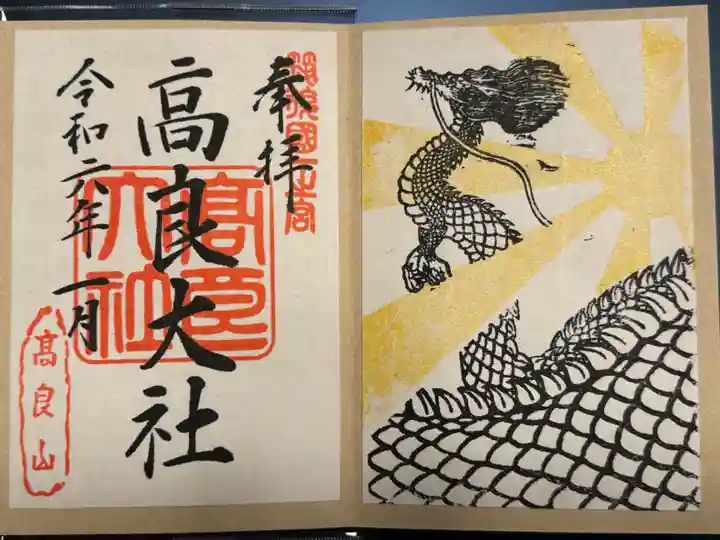 奉拝
筑後國一之宮
高良大社
高良大社
令和六年一月
高良山